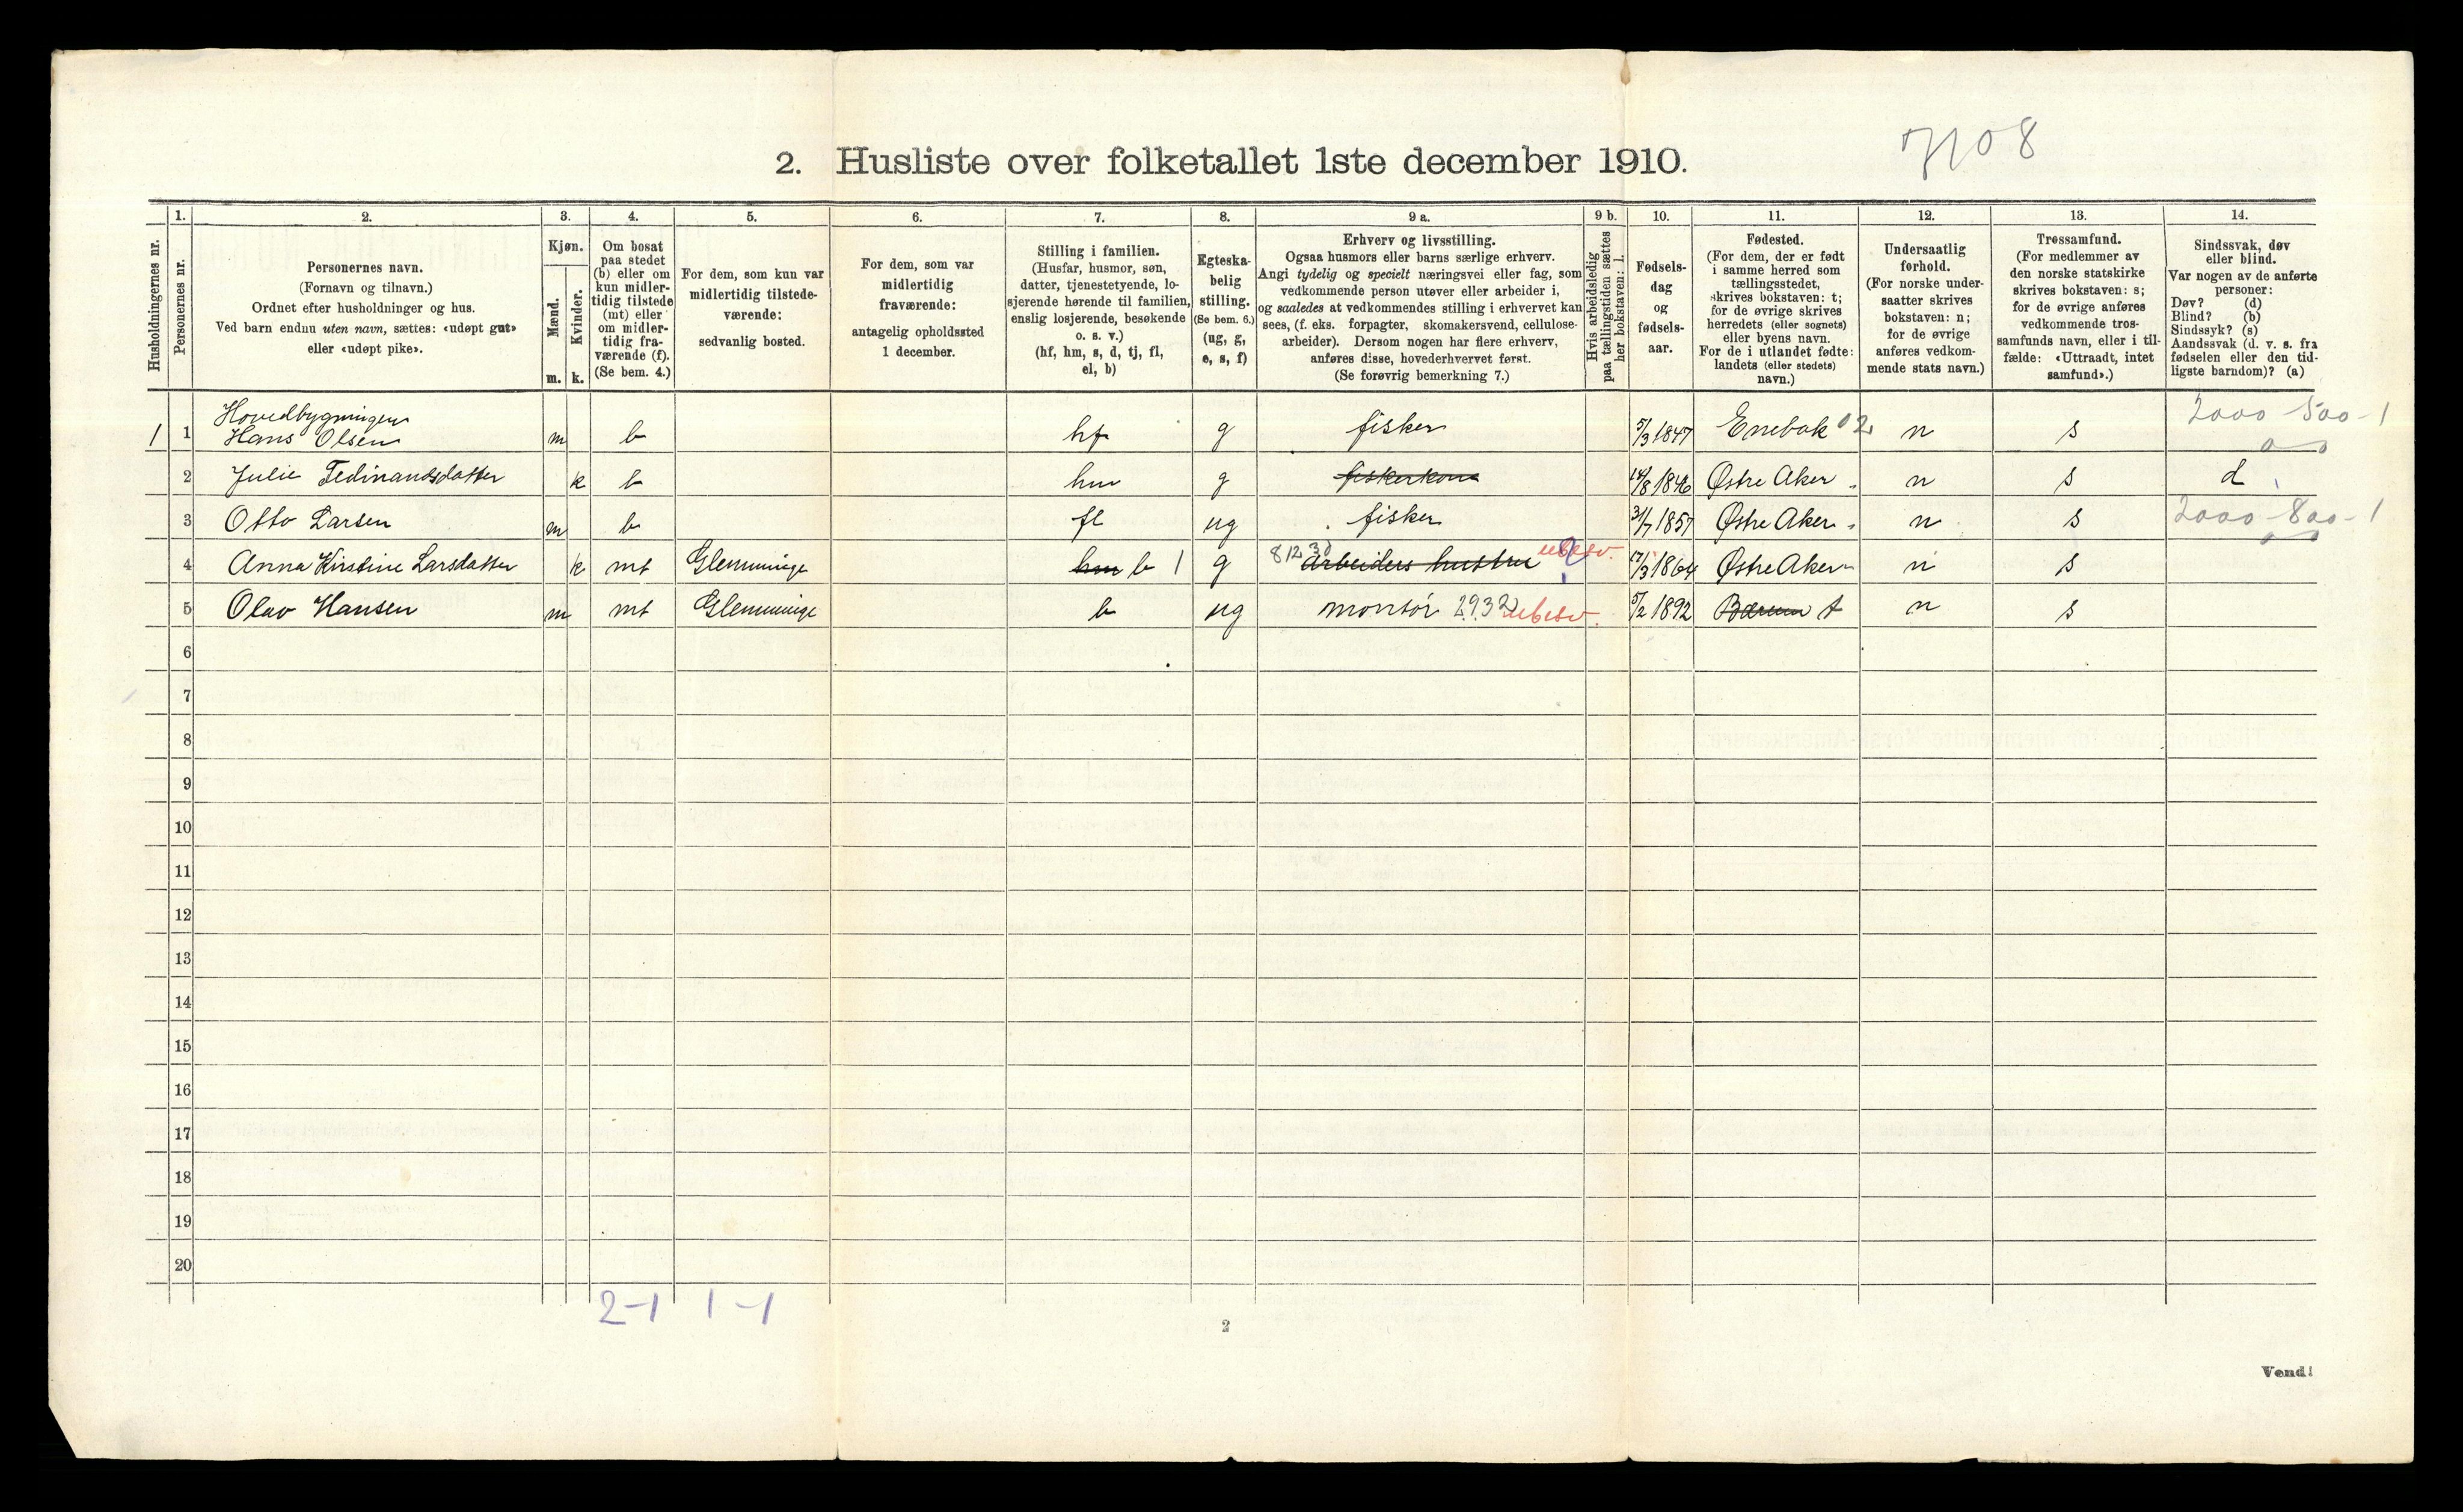 7108
2. Husliste over folketallet 1ste december 1910.
Husholdningernes nr.
1.
Personernes nr.
2.
Personernes navn.
(Fornavn og tilnavn.)
Ordnet efter husholdninger og hus.
Ved barn endnu uten navn, sættes: «udøpt gut»
eller «udøpt pike».
3.
Kjøn.
Mænd.
Kvinder.
m. k.
4.
Om bosat
paa stedet
(b) eller om
kun midler-
tidig tilstede
(mt) eller
om midler-
tidig fra-
værende (f).
(Se bem. 4.)
5.
For dem, som kun var
midlertidig tilstede-
værende:
sedvanlig bosted.
6.
For dem, som var
midlertidig
fraværende:
antagelig opholdssted
1 december.
7.
Stilling i familien.
(Husfar, husmor, søn,
datter, tjenestetyende, lo-
sjerende hørende til familien,
enslig losjerende, besøkende
o. s. v.)
(hf, hm, s, d, tj, fl,
el, b)
8.
Egteska-
belig
stilling.
(Se bem. 6.)
(ug, g,
e, s, f)
9 a.
Erhverv og livsstilling.
Ogsaa husmors eller barns særlige erhverv.
Angi tydelig og specielt næringsvei eller fag, som
vedkommende person utøver eller arbeider i,
og saaledes at vedkommendes stilling i erhvervet kan
sees, (f. eks. forpagter, skomakersvend, cellulose-
arbeider). Dersom nogen har flere erhverv,
anføres disse, hovederhvervet først.
(Se forøvrig bemerkning 7.)
9 b.
Hvis arbeidsledig
paa tællingstiden sættes
her bokstaven: l.
10.
Fødsels-
dag
og
fødsels-
aar.
11.
Fødested.
(For dem, der er født
i samme herred som
tællingsstedet,
skrives bokstaven: t;
for de øvrige skrives
herredets (eller sognets)
eller byens navn.
For de i utlandet fødte:
landets (eller stedets)
navn.)
12.
Undersaatlig
forhold.
(For norske under-
saatter skrives
bokstaven: n;
for de øvrige
anføres vedkom-
mende stats navn.)
13.
Trossamfund.
(For medlemmer av
den norske statskirke
skrives bokstaven: s;
for de øvrige anføres
vedkommende tros-
samfunds navn, eller i til-
fælde: «Uttraadt, intet
samfund».)
14.
Sindssvak, døv
eller blind.
Var nogen av de anførte
personer:
Døv? (d)
Blind? (b)
Sindssyk? (s)
Aandssvak (d. v. s. fra
fødselen eller den tid-
ligste barndom)? (a)
Hovedbygningen
1 1 Hans Olsen m b hf g fisker 5/3 1847 Enebak 02 n s 2000-500-1
2 Julie Fedinandsdatter k b hm g fiskerkone 14/8 1846 Østre Aker n s d
3 Otto Larsen m b fl ug fisker 31/7 1857 Østre Aker n s 2000-800-1
4 Anna Kirstine Larsdatter k mt Glemminge hm b 1 g 812 30 Arbeiders hustru ubesv. 17/3 1864 Østre Aker n s
5 Olav Hansen m mt Glemminge b ug montør 2932 ubesv. 5/2 1892 Bærum t n s
6
7
8
9
10
11
12
13
14
15
16
17
18
19
20
2-1 1-1
2
Vend!